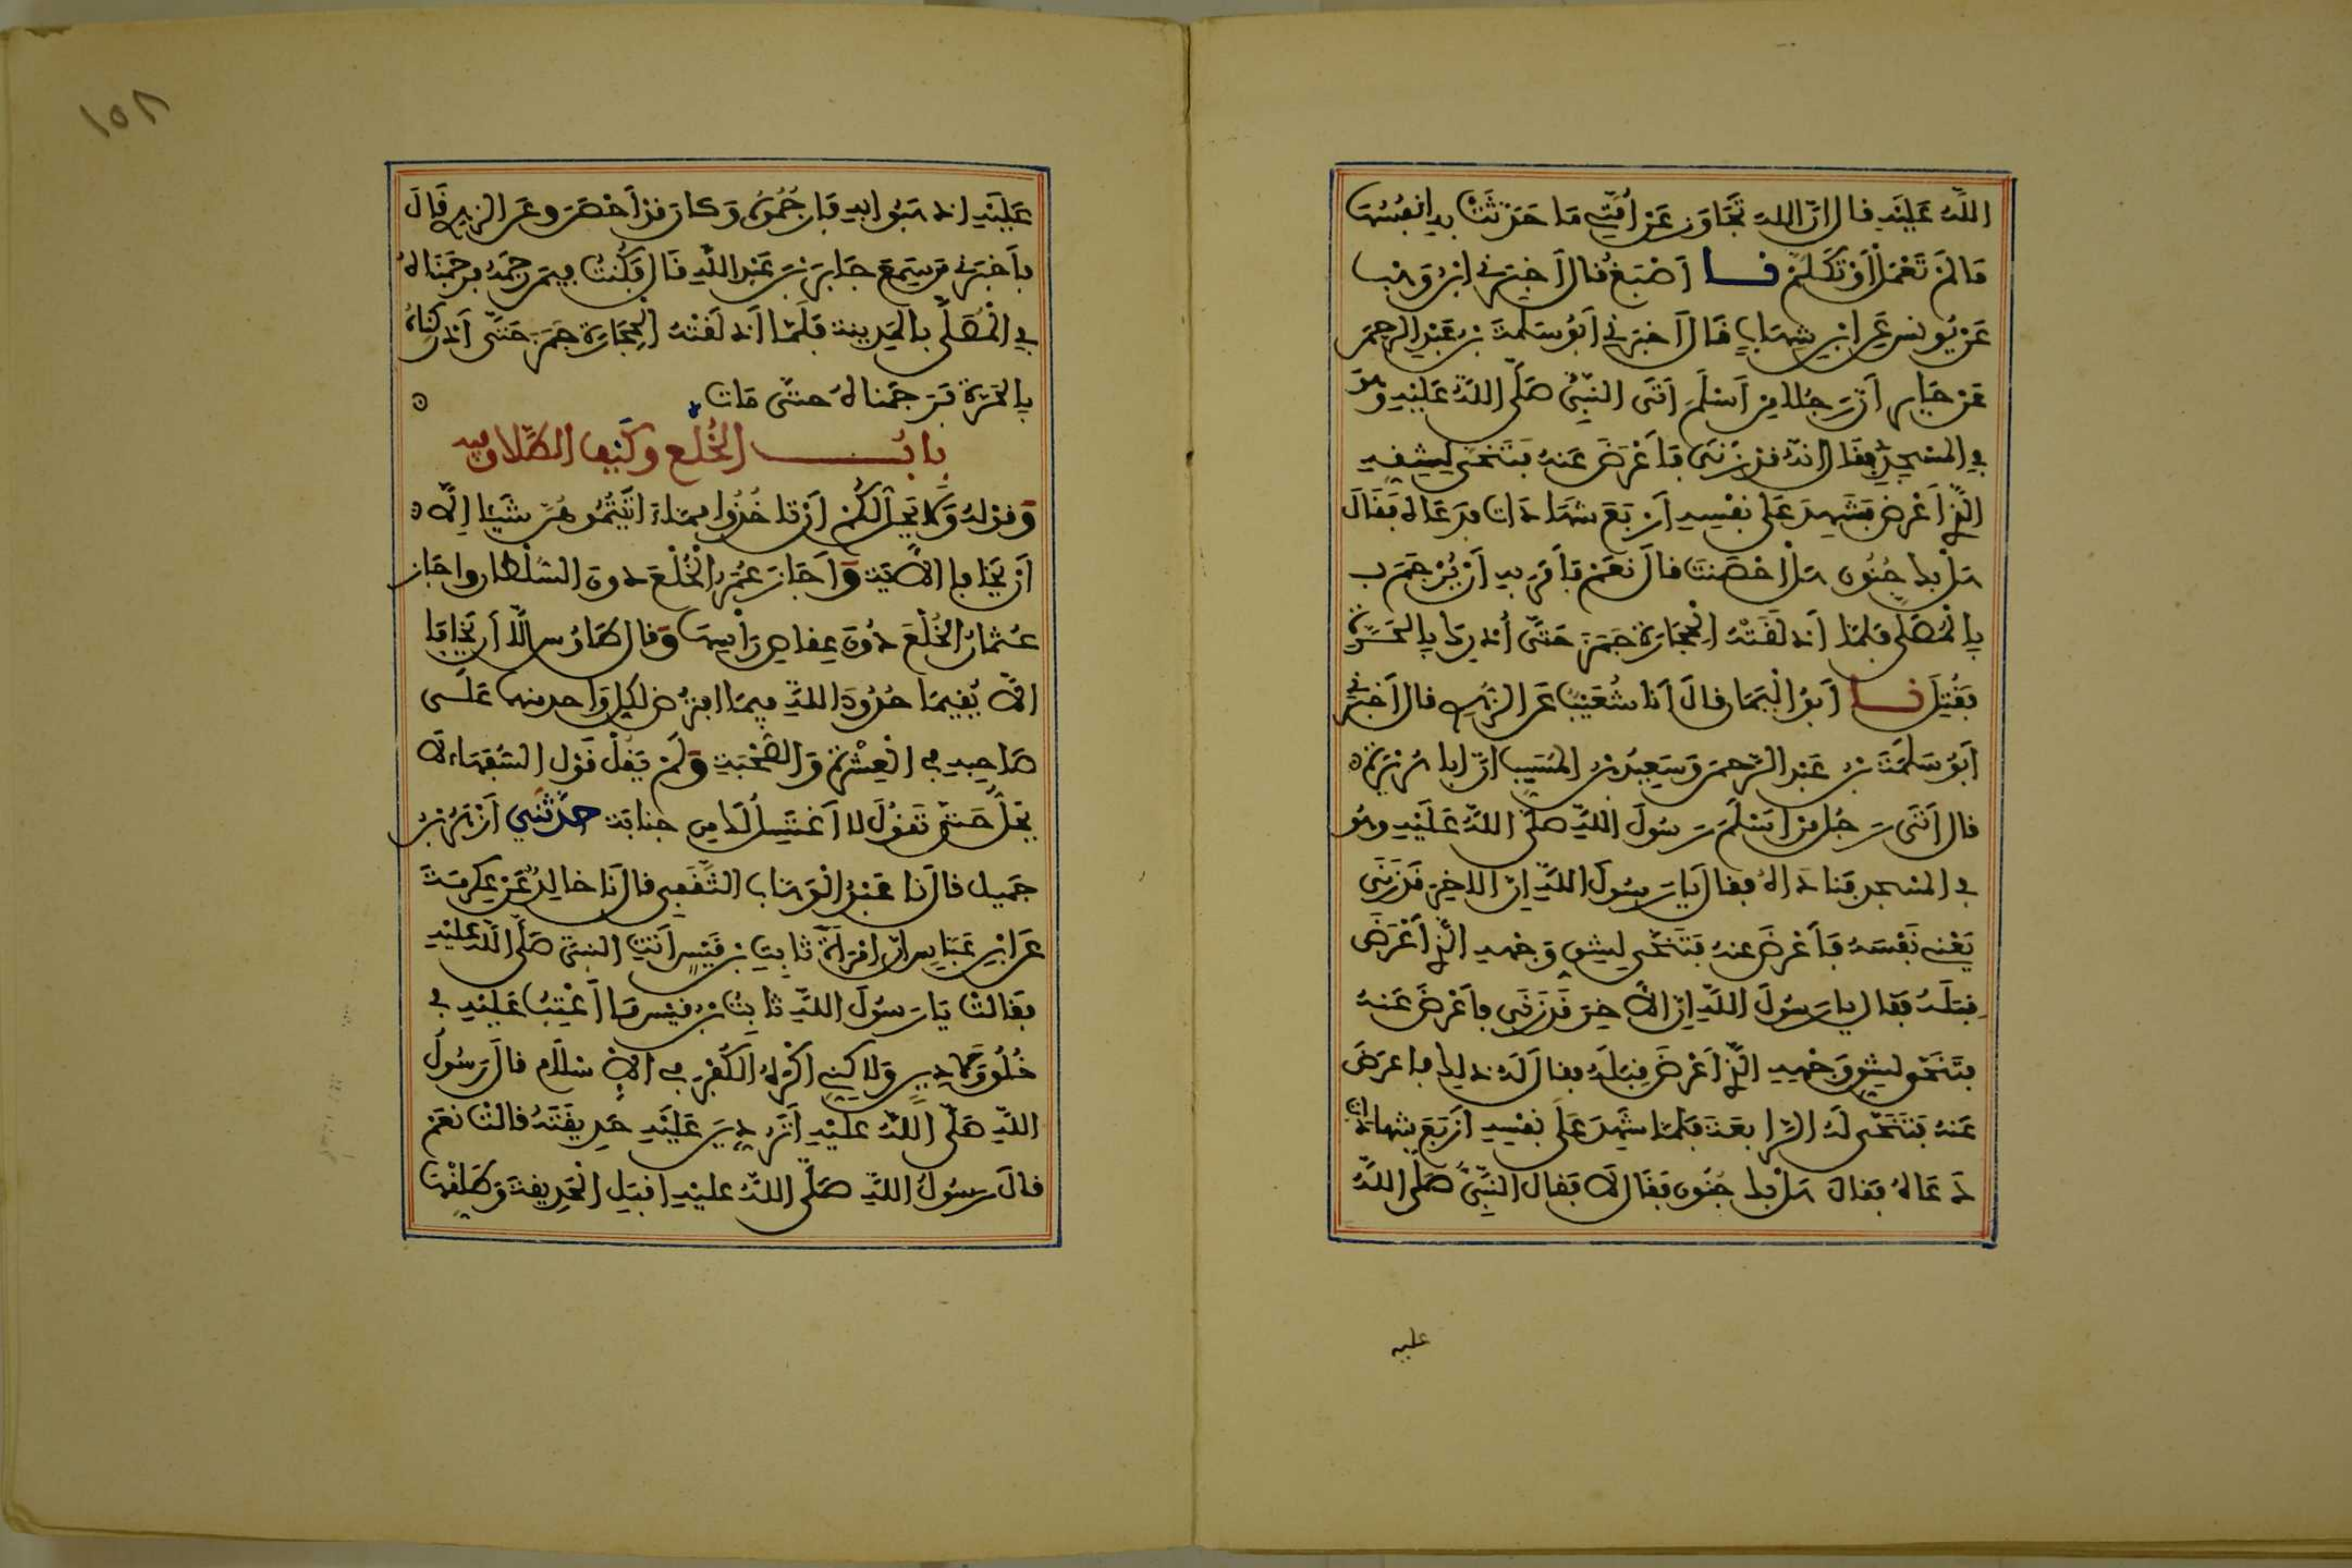 اللَّهُ عَلَيْهِ قال إنَّ اللهَ تَجَاوَزَ عَنْ أُمَّتِي مَا حَدَّثَتْ به أنفُسَها
مَا لَمْ تَعْمَلْ أوْ تَكَلَّمْ نـــا أَصْبَغُ قال أخبَرَني ابنُ وَهْب
عَنْ يُونس عَنِ ابْنِ شِهَابٍ قَالَ أَخبَرَني أَبُو سَلَمَةَ بْنُ عَبْدِ الرحمن
عَنْ جَابِرٍ أَنَّ رَجُلا مِنْ أَسْلَمَ أَتَى النَّبِيَّ صَلَّى اللَّهُ عَلَيْهِ وهُوَ
في المسْجِدِ فقَال إنهُ قَدْ زَنَى فَأَعْرَضَ عَنهُ فَتَنَحَّى لِشِقِّهِ
الَّذِي أَعْرَضَ فشَهِدَ عَلَى نفْسِهِ أَرْبَعَ شهَادَات فدَعَاهُ فَقَالَ
هَلْ بِكَ جُنُون هَلْ أَحْصَنْتَ قالَ نَعَمْ فَأَمَرَ بِهِ أَنْ يُرْجَمَ
بِالْمُصَلَّى فلَمَّا أَذْلَقَتْهُ الْحِجَارَةُ جَمَزَ حَتَّى أُدْرِكَ بِالحَرَّةِ
فَقُتِلَ نـــا أَبُو الْيَمَان قَالَ أَنا شُعَيْبٌ عَنِ الزُّهري قال أَخبَرَني
أَبُو سَلَمَةَ بْنُ عَبْدِ الرَّحمن وَسَعِيدُ بْنُ المُسَيِّب أنَّ أبا هُرَيْرَةَ
قال أَتَى رَجُلٌ مِنْ أَسْلَمَ رَسُولَ اللَّهِ صَلَّى اللَّهُ عَلَيْهِ وهُو
في المسْجد فَنَادَاهُ فقال يَا رَسُولَ اللَّهِ إنَّ الأَخِرَ قَدْ زَنَى
يَعْني نَفْسَهُ فَأَعْرَضَ عنهُ فَتَنَحَّى لِشِقِّ وَجْهِهِ الَّذِي أَعْرَضَ
قِبَلَهُ فَقَال يا رَسُولَ اللَّهِ إنَّ الأَخِرَ قَدْ زَنَى فأَعْرَضَ عَنهُ
فتَنَحَّى لِشِقِّ وَجْهِهِ الَّذِي أَعْرَضَ قِبَلَهُ فقال لَهُ ذلِكَ فأعرَضَ
عَنهُ فَتَنَحَّى لَهُ الرَّابعَةَ فَلَمَّا شَهِدَ عَلَى نفْسِهِ أَرْبَعَ شهادات
دَعَاهُ فَقالَ هَلْ بِكَ جُنُون فقَالَ لا فَقالَ النَّبِيُّ صَلَّى اللَّهُ
عليه
١٥٨
عَلَيْهِ اذهَبُوا به فَارْجُمُوهُ وَكان قَدْ أَحْصَنَ وعَنِ الزهري قَالَ
فأَخبَرَني مَنْ سَمِعَ جَابِرَ بْنَ عَبْدِ اللَّهِ قَالَ فَكُنتُ فِيمَنْ رَجَمَهُ فرَجَمْنَاهُ
في الْمُصَلَّى بالمَدِينة فَلَمَّا أَذْلَقَتْهُ الْحِجَارَةُ جَمَزَ حَتَّى أَدْرَكْنَاهُ
بالحَرَّة فَرَجَمْناهُ حتَّى مَات
بابُ الخُلْعِ وكَيْفَ الطَّلاق فيه
وَقَوْلهُ وَلا يَحِلُّ لَكُمْ أَنْ تَأْخُذُوا مِمَّا آتَيْتُمُوهُنَّ شَيْئا إِلَّا
أَنْ يَخَافَا الآيَة وَأَجَازَ عُمَرُ الْخُلْعَ دونَ السُّلْطَان وأجَاز
عُثمانُ الخُلْعَ دُونَ عِقاصِ رَأْسِهَا وَقال طَاوُس إِلَّا أَنْ يَخَافَا
ألَّا يُقِيمَا حُدُودَ اللَّهِ فِيمَا افترَضَ لِكُلِّ وَاحدٍ منهما عَلَى
صَاحِبِهِ في الْعِشْرَةِ وَالصُّحْبَةِ وَلَمْ يَقُلْ قَوْل السُّفَهَاء لا
يَحِلُّ حَتَّى تَقُولَ لا أَغْتَسِلُ لَكَ مِن جنابَة حَدَّثَنِي أَزْهَرُ بْنُ
جَمِيل قَال نَا عَبْدُ الْوَهَّاب الثَّقَفِي قال نَا خَالِدٌ عَنْ عِكرِمَةَ
عَنِ ابْنِ عَبَّاسٍ أنَّ امْرَأَةَ ثَابِتِ بْنِ قَيْسٍ أَتَتِ النبيَّ صَلَّى اللَّهُ عَلَيْهِ
فقَالَتْ يَا رَسُولَ اللَّهِ ثابِتُ بْنُ قَيْس مَا أَعْتِبُ عَلَيْهِ في
خُلُقٍ وَلا دِينٍ وَلاكِنِّي أَكْرَهُ الْكُفْرَ في الإِسْلَام قَالَ رَسُولُ
اللَّهِ صَلَّى اللَّهُ عَلَيْهِ أَتَرُدِّينَ عَلَيْهِ حَدِيقَتَهُ قَالَتْ نَعَمْ
قَالَ رَسُولُ اللَّهِ صَلَّى اللَّهُ عَلَيْهِ اقْبَلِ الْحَدِيقَةَ وَطَلِّقْهَا